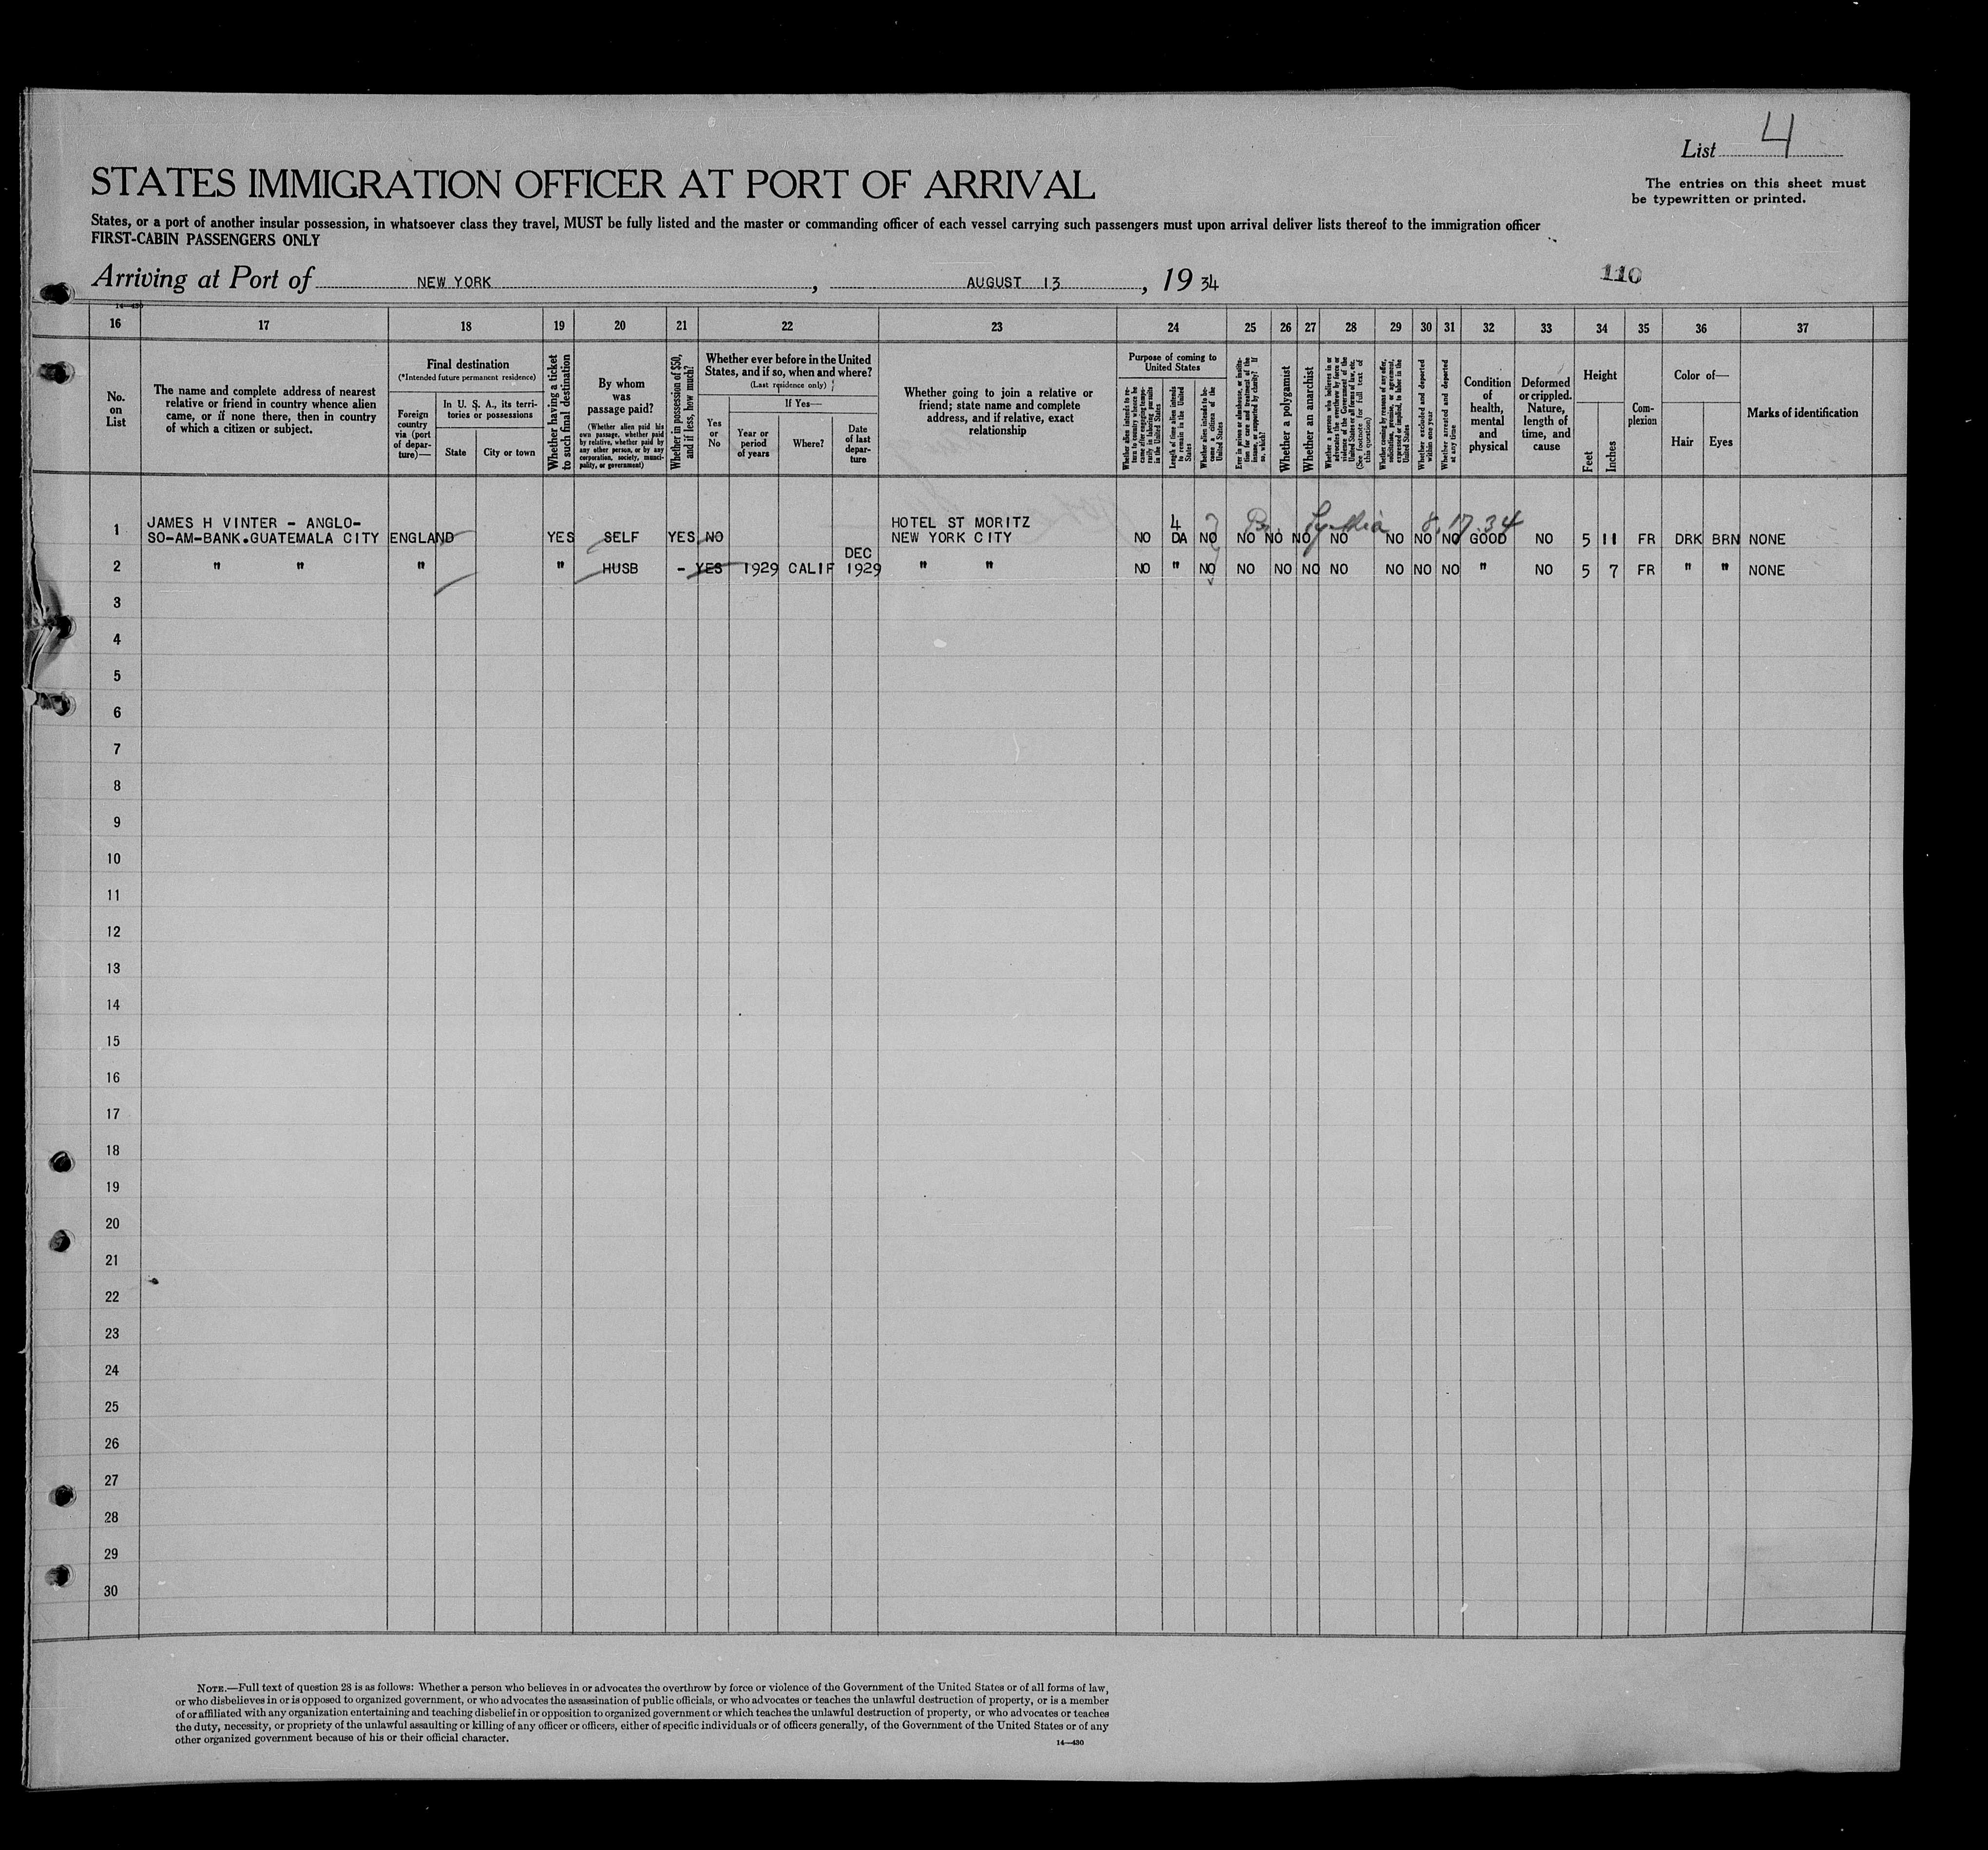 List 4
STATES IMMIGRATION OFFICER AT PORT OF ARRIVAL
The entries on this sheet must
be typewritten or printed.
States, or a port of another insular possession, in whatsoever class they travel, MUST be fully listed and the master or commanding officer of each vessel carrying such passengers must upon arrival deliver lists thereof to the immigration officer
FIRST-CABIN PASSENGERS ONLY
Arriving at Port of NEW YORK, AUGUST 13, 1934
110
14—430
16 17 18 19 20 21 22 23 24 25 26 27 28 29 30 31 32 33 34 35 36 37
No.
on
List
The name and complete address of nearest
relative or friend in country whence alien
came, or if none there, then in country
of which a citizen or subject.
Final destination
(*Intended future permanent residence)
Foreign
country
via (port
of depar-
ture)—
In U. S. A., its terri-
tories or possessions
State
City or town
Whether having a ticket
to such final destination
By whom
was
passage paid?
(Whether alien paid his
own passage, whether paid
by relative, whether paid by
any other person, or by any
corporation, society, munici-
pality, or government)
Whether in possession of $50,
and if less, how much?
Whether ever before in the United
States, and if so, when and where?
(Last residence only)
Yes
or
No
If Yes—
Year or
period
of years
Where?
Date
of last
depar-
ture
Whether going to join a relative or
friend; state name and complete
address, and if relative, exact
relationship
Purpose of coming to
United States
Whether alien intends to re-
turn to country whence he
came after engaging tempo-
rarily in laboring pursuits
in the United States
Length of time alien intends
to remain in the United
States
Whether alien intends to be-
come a citizen of the
United States
Ever in prison or almshouse, or institu-
tion for care and treatment of the
insane, or supported by charity? If
so, which?
Whether a polygamist
Whether an anarchist
Whether a person who believes in or
advocates the overthrow by force or
violence of the Government of the
United States or all forms of law, etc.
(See footnote for full text of
this question)
Whether coming by reasons of any offer,
solicitation, promise, or agreement,
expressed or implied, to labor in the
United States
Whether excluded and deported
within one year
Whether arrested and deported
at any time
Condition
of
health,
mental
and
physical
Deformed
or crippled.
Nature,
length of
time, and
cause
Height
Feet
Inches
Com-
plexion
Color of—
Hair
Eyes
Marks of identification
JAMES H VINTER - ANGLO- HOTEL ST MORITZ 4 8.17.34
1 SO-AM-BANK.GUATEMALA CITY ENGLAND YES SELF YES NO NEW YORK CITY NO DA NO NO NO NO NO NO NO NO GOOD NO 5 11 FR DRK BRN NONE
DEC
2 " " " " HUSB - YES 1929 CALIF 1929 " " NO " NO NO NO NO NO NO NO NO " NO 5 7 FR " " NONE
3
4
5
6
7
8
9
10
11
12
13
14
15
16
17
18
19
20
21
22
23
24
25
26
27
28
29
30
NOTE.—Full text of question 28 is as follows: Whether a person who believes in or advocates the overthrow by force or violence of the Government of the United States or of all forms of law,
or who disbelieves in or is opposed to organized government, or who advocates the assassination of public officials, or who advocates or teaches the unlawful destruction of property, or is a member
of or affiliated with any organization entertaining and teaching disbelief in or opposition to organized government or which teaches the unlawful destruction of property, or who advocates or teaches
the duty, necessity, or propriety of the unlawful assaulting or killing of any officer or officers, either of specific individuals or of officers generally, of the Government of the United States or of any
other organized government because of his or their official character.
14—430